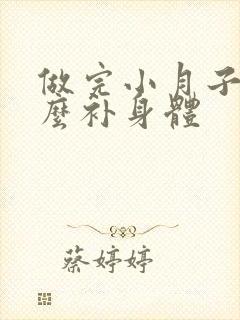 做完小月子
麼补身體
蔡婷婷